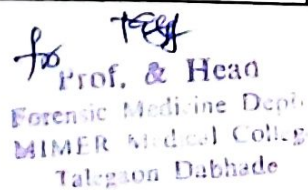 for
Prof. & Head
Forensic Medicine Dept.
MIMER Medical Colleg
Talegaon Dabhade